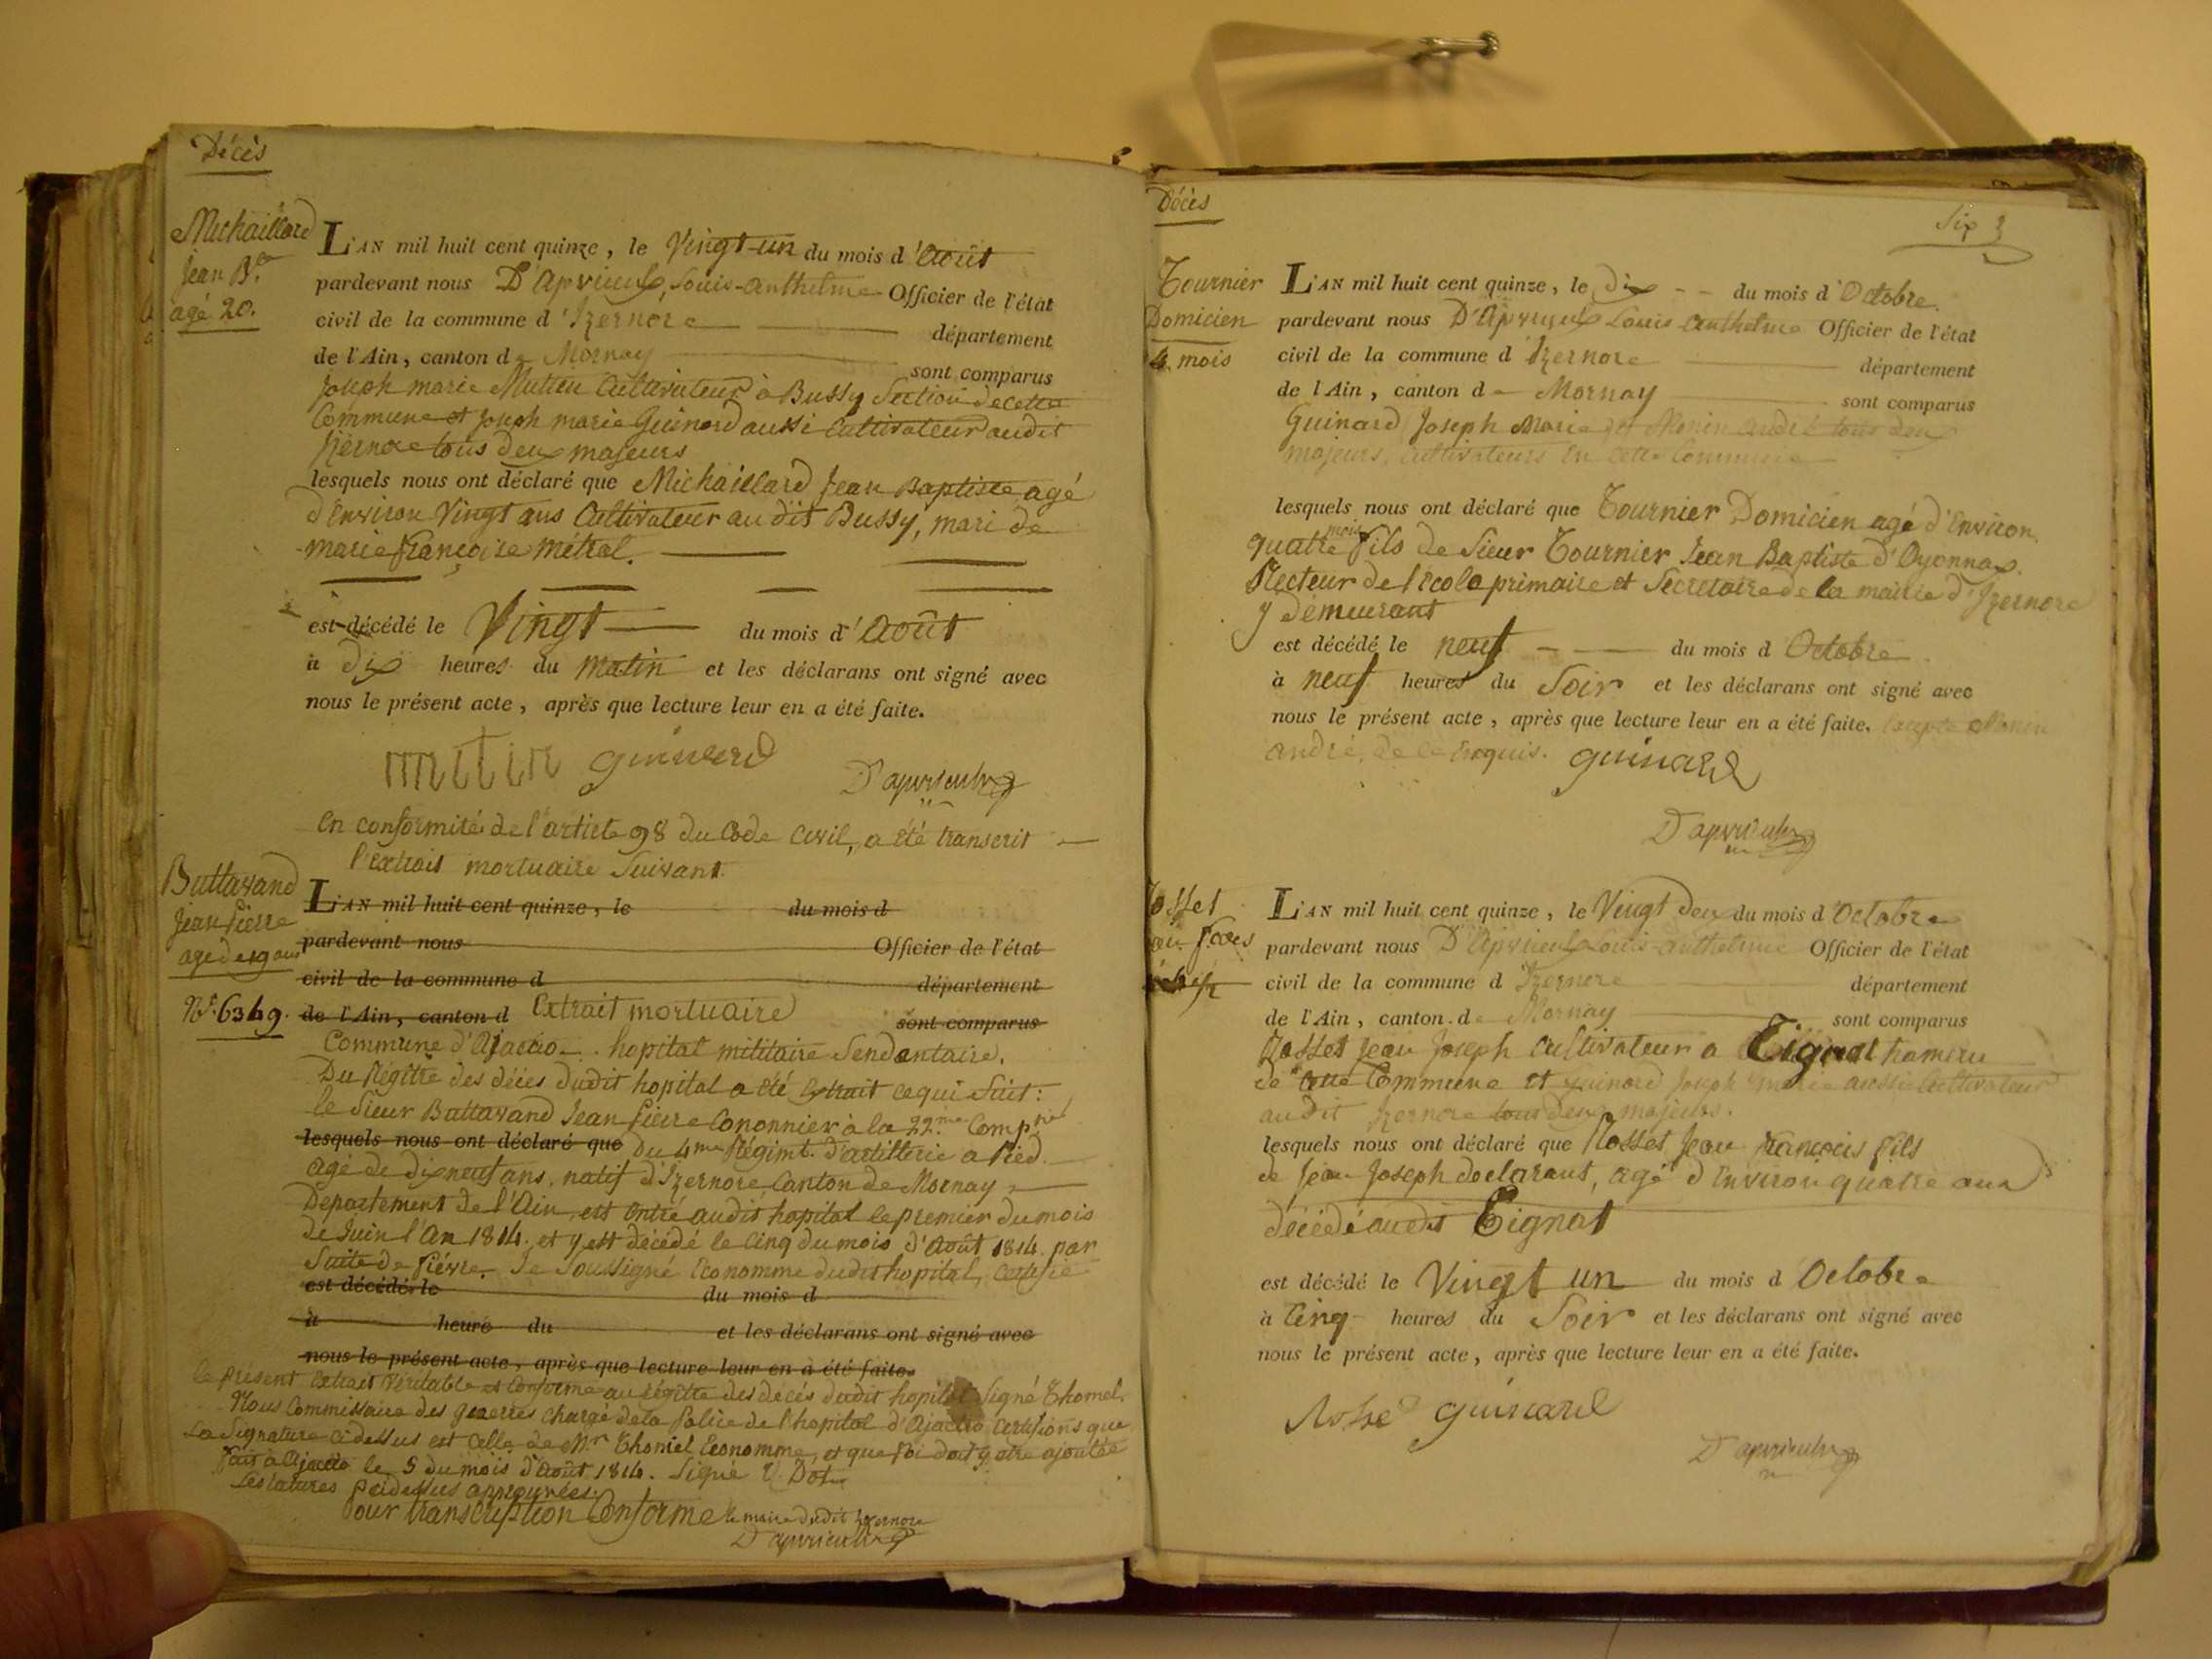 Décès
Michaillard
Jean Bte
agé 20.
L'AN mil huit cent quinze, le Vingt-un du mois d'Août
pardevant nous D'Aprvieux, Louis-anthelme Officier de l'état
civil de la commune d'Izernore département
de l'Ain, canton de Mornay sont comparus
Joseph marie Mutin Cultivateur à Bussy Section de cette
Commune et Joseph marie Guinard aussi Cultivateur audit
Izernore tous deux majeurs
lesquels nous ont déclaré que Michaillard Jean Baptiste agé
d'Environ Vingt ans Cultivateur au dit Bussy, mari de
marie françoise métral.
est décédé le Vingt du mois d'Août
à Dix heures du matin et les déclarans ont signé avec
nous le présent acte, après que lecture leur en a été faite.
mutin guinard
D'aprvieulx
En conformité de l'article 98 du Code Civil, a été transcrit
l'extrait mortuaire Suivant.
Buttavand
Jean Pierre
agé de 19 ans
No. 6349.
L'AN mil huit cent quinze, le du mois d
pardevant nous Officier de l'état
civil de la commune d département
de l'Ain, canton d Extrait mortuaire sont comparus
Commune d'Ajaccio. hopital militaire Sendantaire.
Du Régitre des décès dudit hopital a été Extrait ce qui Suit:
le Sieur Buttavand Jean Pierre Cononnier à la 22.me Comp.nie
lesquels nous ont déclaré que du 4me Régimt. d'artillerie a Pied.
agé de dixneuf ans, natif d'Izernore, Canton de Mornay
Departement de l'Ain, est Entré audit hopital le premier du mois
de Juin l'An 1814. et y est décédé le Cinq du mois d'Août 1814. par
Suite de fiévre. Je Soussigné Economme dudit hopital, Certifie
est décédé le du mois d
à heure du et les déclarans ont signé avec
nous le présent acte, après que lecture leur en a été faite.
le présent Extrait Véritable et Conforme au régitre des decés dudit hopital Signé Thomel.
Nous Commissaire des guerres chargé de la Police de l'hopital d'Ajaccio Certifions que
La Signature cidessus est Celle de Mr. Thomel Economme, et que foi doit y etre ajoutée
fait à Ajaccio le 5 du mois d'Août 1814. Signé
Les ratures cidessus approuvées.
Pour transcription Conforme le maire dudit Izernore
D'aprvieulx
Décès
Six
Tournier
Domicien
4 mois
L'AN mil huit cent quinze, le Dix du mois d'Octobre
pardevant nous D'Aprvieux Louis anthelme Officier de l'état
civil de la commune d'Izernore département
de l'Ain, canton de Mornay sont comparus
Guinard Joseph Marie et Monin andré tous deux
majeurs, Cultivateurs En Cette Commune
lesquels nous ont déclaré que Tournier Domicien agé d'Environ
quatre mois fils de Sieur Tournier Jean Baptiste d'Oyonnax.
Recteur de l'école primaire et Secretaire de la mairie d'Izernore
y demeurant
est décédé le neuf du mois d'Octobre
à neuf heures du Soir et les déclarans ont signé avec
nous le présent acte, après que lecture leur en a été faite. Excepté Monin
andré, de ce Enquis. guinard
D'aprvieulx
L'AN mil huit cent quinze, le Vingt Deux du mois d'Octobre
pardevant nous D'Aprvieux Louis-anthelme Officier de l'état
civil de la commune d Izernore département
de l'Ain, canton de Mornay sont comparus
Rosset Jean Joseph Cultivateur a Tignat hameau
de Cette Commune et guinard Joseph marie aussi Cultivateur
audit Izernore tous deux majeurs.
lesquels nous ont déclaré que Rosset Jean françois fils
de Jean Joseph declarant, agé d'Environ quatre ans
décédé audit Tignat
est décédé le Vingt un du mois d'Octobre
à Cinq heures du Soir et les déclarans ont signé avec
nous le présent acte, après que lecture leur en a été faite.
Rosset guinard
D'aprvieulx